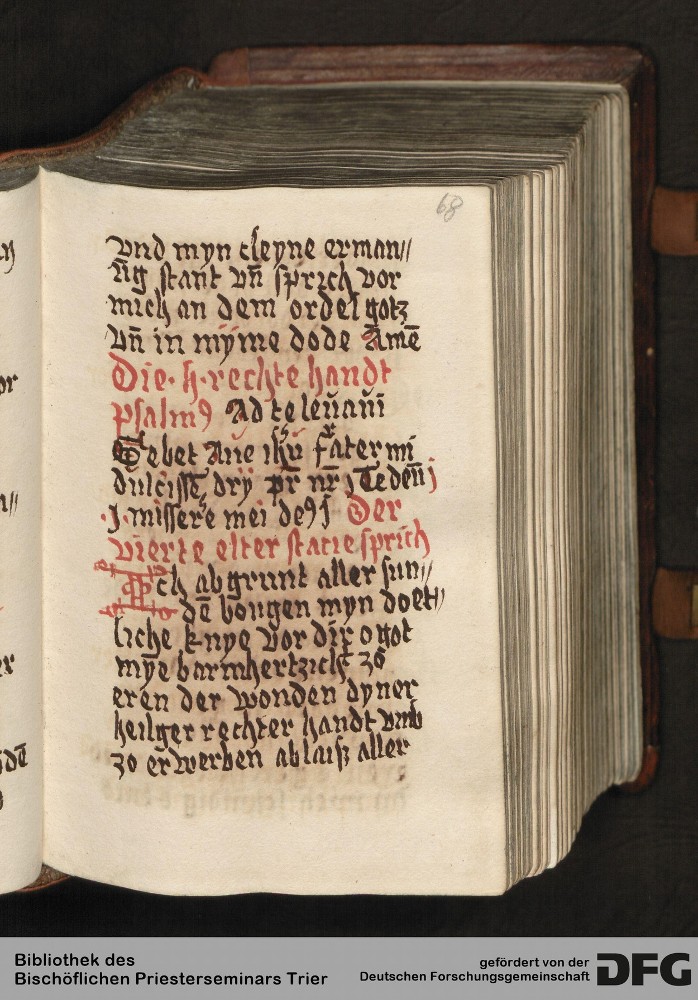 68
vnd myn cleyne erman//
ūg stant vn̄ sprich vor
mich an dem ordel gotz
vn̄ in myme dode Amē
Die · h · rechte handt
psalmꝯ Ad te leuaui
Gebet Aue ihū fr̄ater mi
dulcissē dry pr̄ nr̄ j Te deū j
· j · missere mei deꝯ j Der
vierte elter statie sprich
Ich abgrunt aller sun//
dē bougen myn doet//
liche knye vor dir o got
mỹe barmhertzich̄t zo
eren der wonden dyner
heilger rechter handt vmb
zo erwerben ablaiß aller
Bibliothek des
Bischöflichen Priesterseminars Trier
gefördert von der
Deutschen Forschungsgemeinschaft
DFG